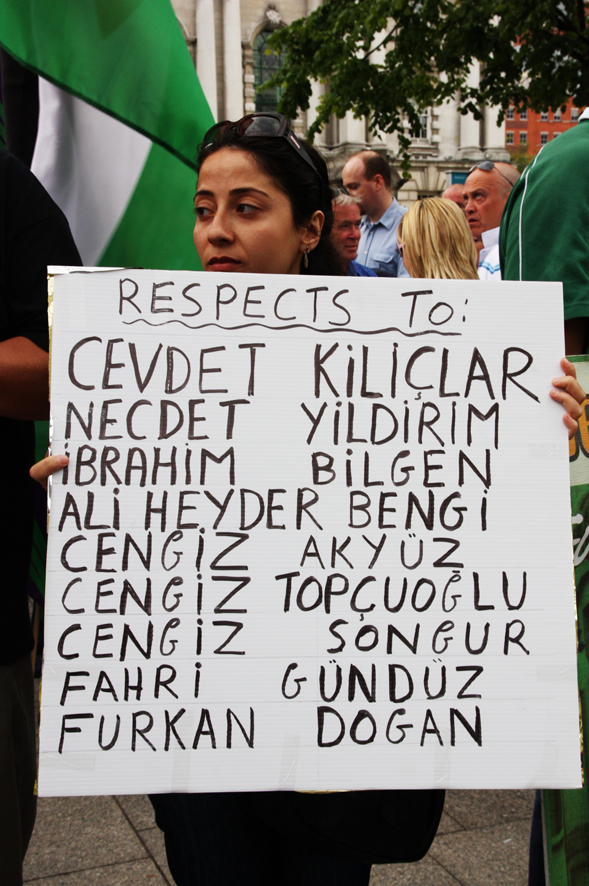 RESPECTS TO:
CEVDET KİLİÇLAR
NECDET YİLDİRİM
İBRAHİM BİLGEN
ALİ HEYDER BENGİ
CENGİZ AKYÜZ
CENGİZ TOPÇUOĞLU
CENGİZ SONGUR
FAHRİ GÜNDÜZ
FURKAN DOGAN